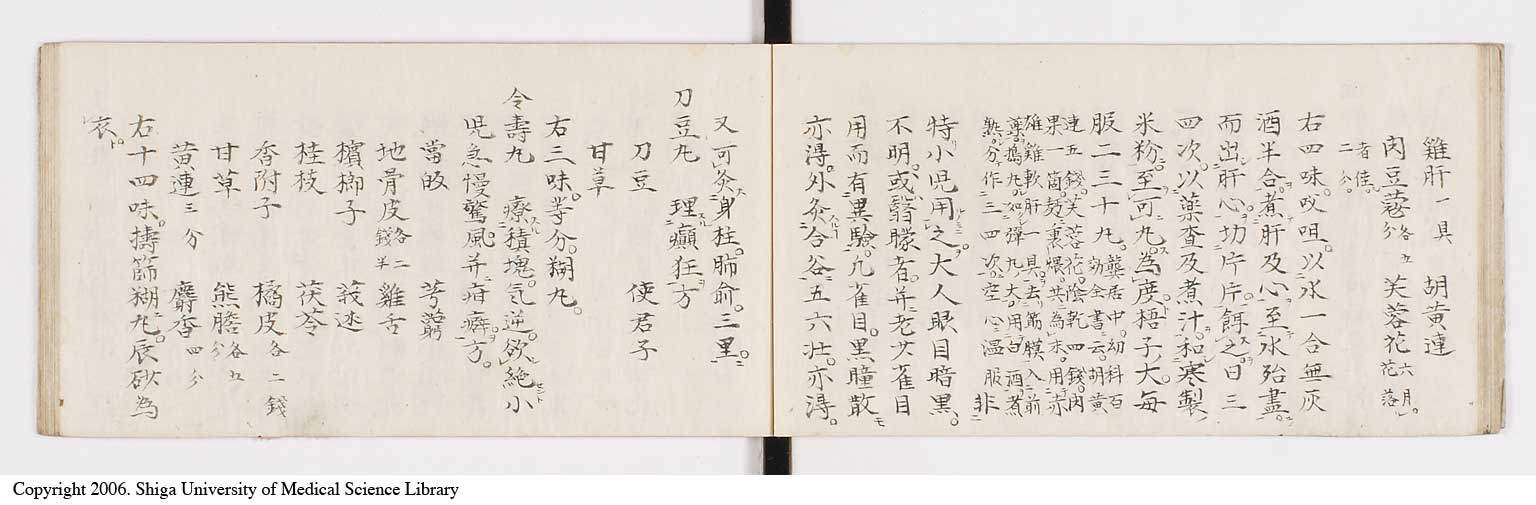 雞肝一具　胡黄連
肉豆蔲各五分　芙蓉花六月花落
者佳二分
右四味㕮咀以水一合無灰
酒半合煮肝及心至水殆盡
而出肝心切片片餌之日三
四次以藥査及煮汁和寒製
米粉至可丸為度梧子大毎
服二三十丸龔居中幼科百効全書云胡黄
連五錢芙蓉花陰乾四錢肉
果一箇麪裏煨共為末用赤
雄雞軟肝一具去筋膜入前
藥搗丸如彈丸大用白酒煮
熟分作三四次空心温服非
特小児用之大人眼目暗黒
不明或翳朦者并老少雀目
用而有異驗凡雀目黒瞳散
亦淂外灸合谷五六壮亦淂
又可灸身柱肺俞三里
刀豆丸　理癲狂方
刀豆　使君子
甘草
右三味等分糊丸
令壽丸　療積塊気逆欲絶小
児急慢驚風并疳癖方
當皈　芎藭
地骨皮各二錢半　雞舌
檳榔子　莪迷
桂枝　茯苓
香附子　橘皮各二錢
甘草　熊膽各五分
黄連三分　麝香四分
右十四味擣篩糊丸辰砂為
衣
Copyright 2006. Shiga University of Medical Science Library